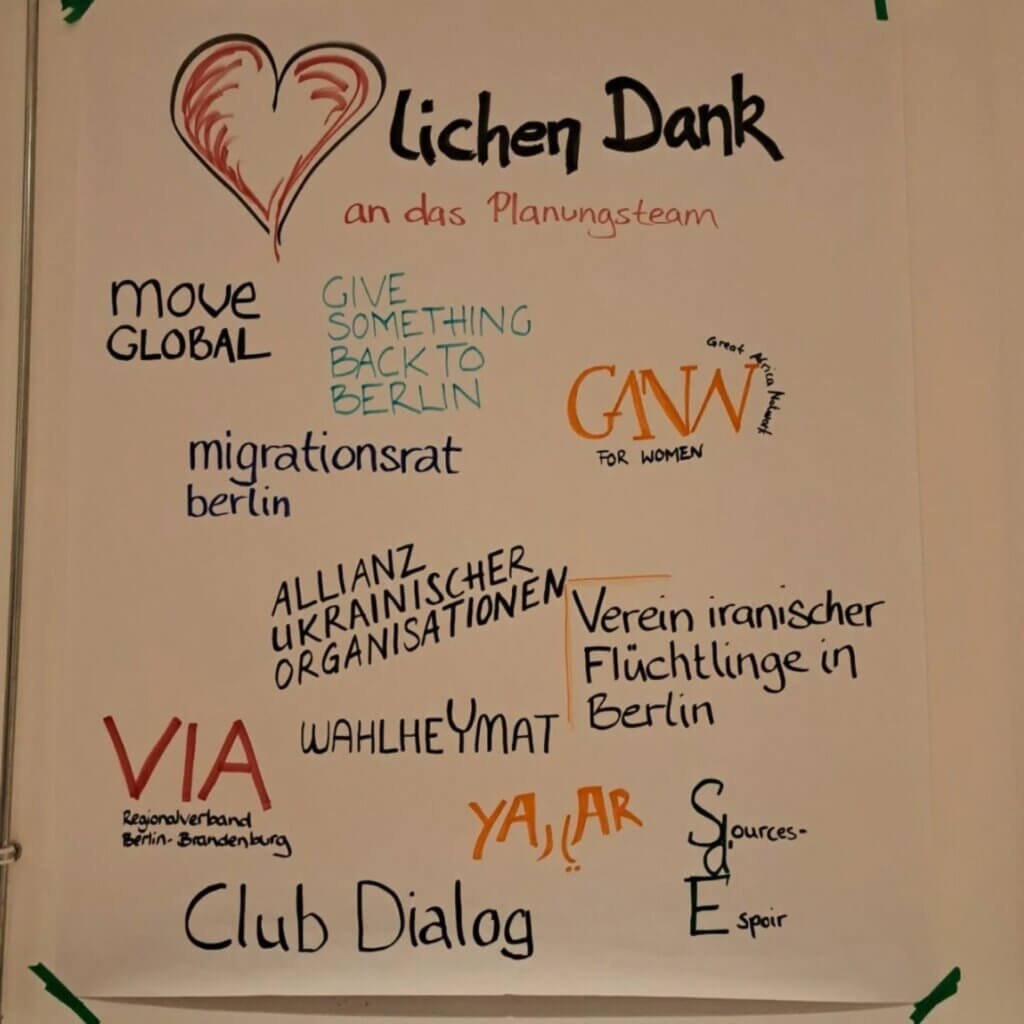 lichen Dank
an das Planungsteam
move
GLOBAL
GIVE
SOMETHING
BACK TO
BERLIN
Great Africa Network
GANW
FOR WOMEN
migrationsrat
berlin
ALLIANZ
UKRAINISCHER
ORGANISATIONEN
Verein iranischer
Flüchtlinge in
Berlin
WAHLHEYMAT
VIA
Regionalverband
Berlin-Brandenburg
YAAR
Sources-
d'
Espoir
Club Dialog